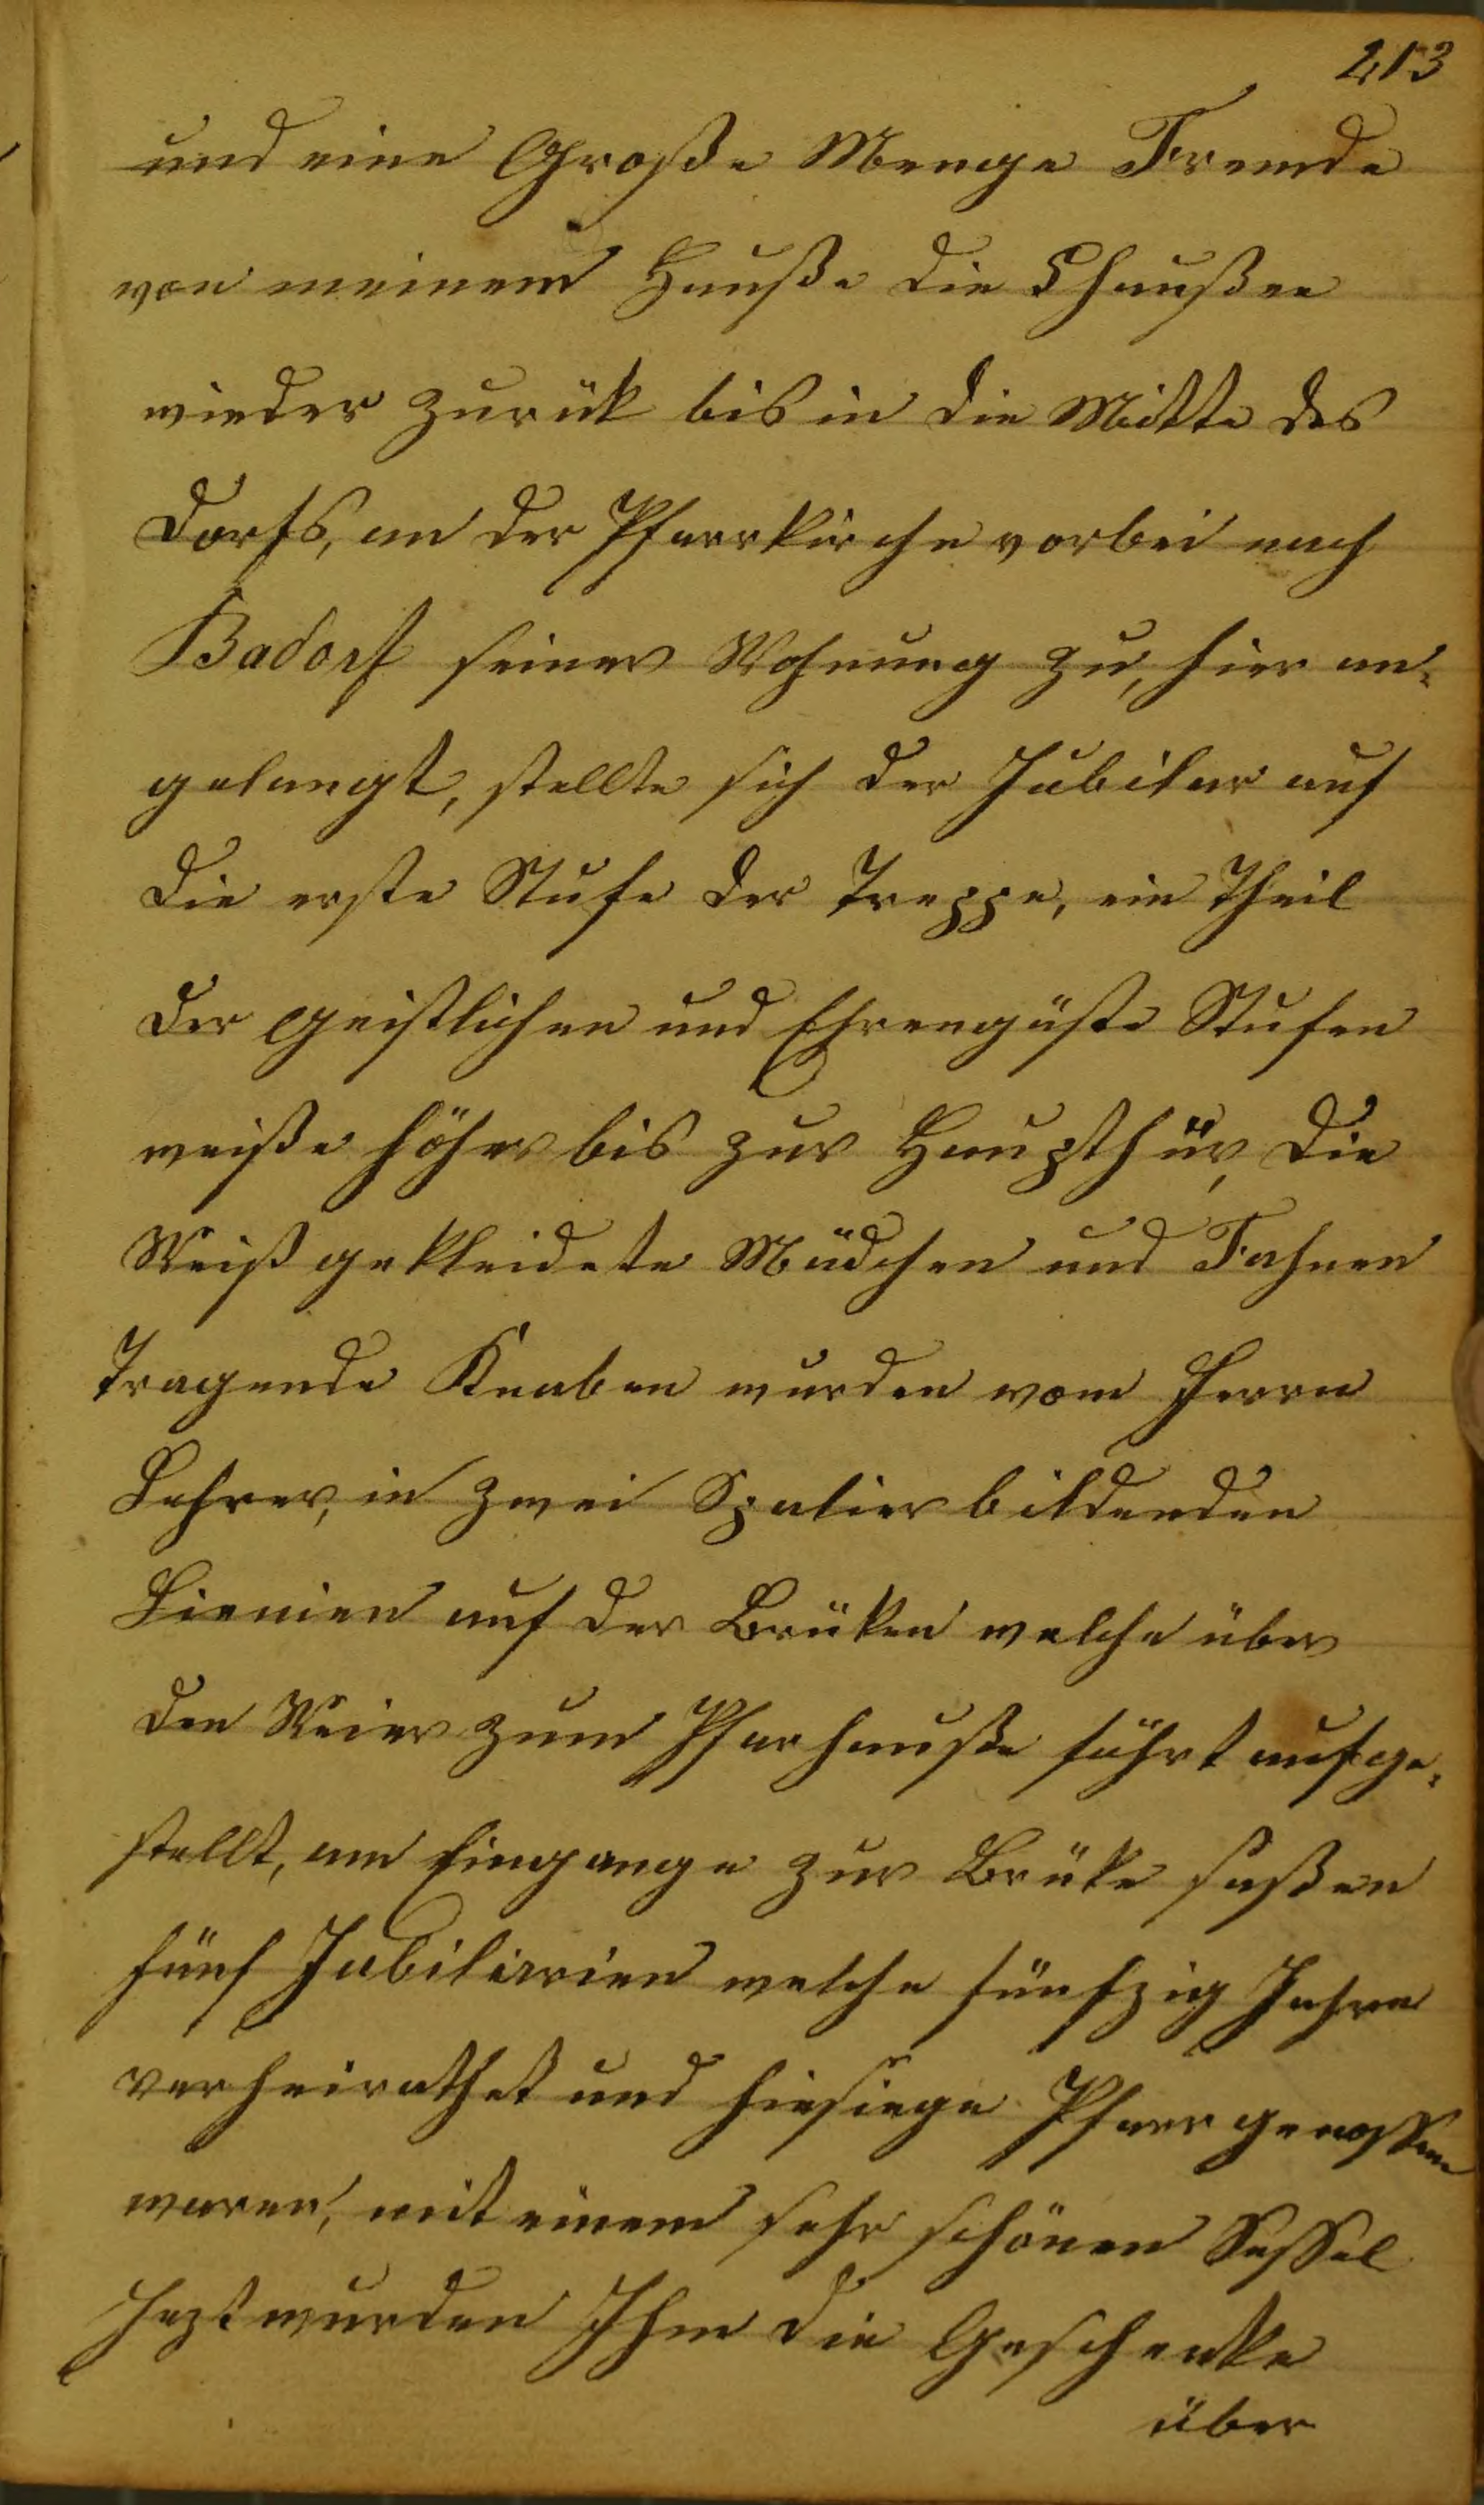 213
und eine Große Menge Fremde
von meinem Hauße die Chaußee
wieder zurük bis in die Mitte des
Dorfs, an der Pfarrkirche vorbei nach
Badorf seiner Wohnung zu, hier an-
gelangt, stellte sich der Jubilar auf
die erste Stufe der Treppe, ein Theil
der Geistlichen und Ehrengäste Stufen
weiße höher bis zur Haupthür, die
Weiß gekleidete Mädchen und Fahnen
Tragende Knaben wurden vom Herrn
Lehrer, in zwei Spalier bildenden
Lienien auf der Brüken welche über
den Weier zum Pfarhauße führt aufge-
stellt, am Eingange zur Brüke saßen
fünf Jubilarien welche fünfzig Jahre
verheirathet und hiesiege Pfarrgenossen
waren, mit einem sehr schönen Sessel
Jezt wurden Ihm die Geschenke
über